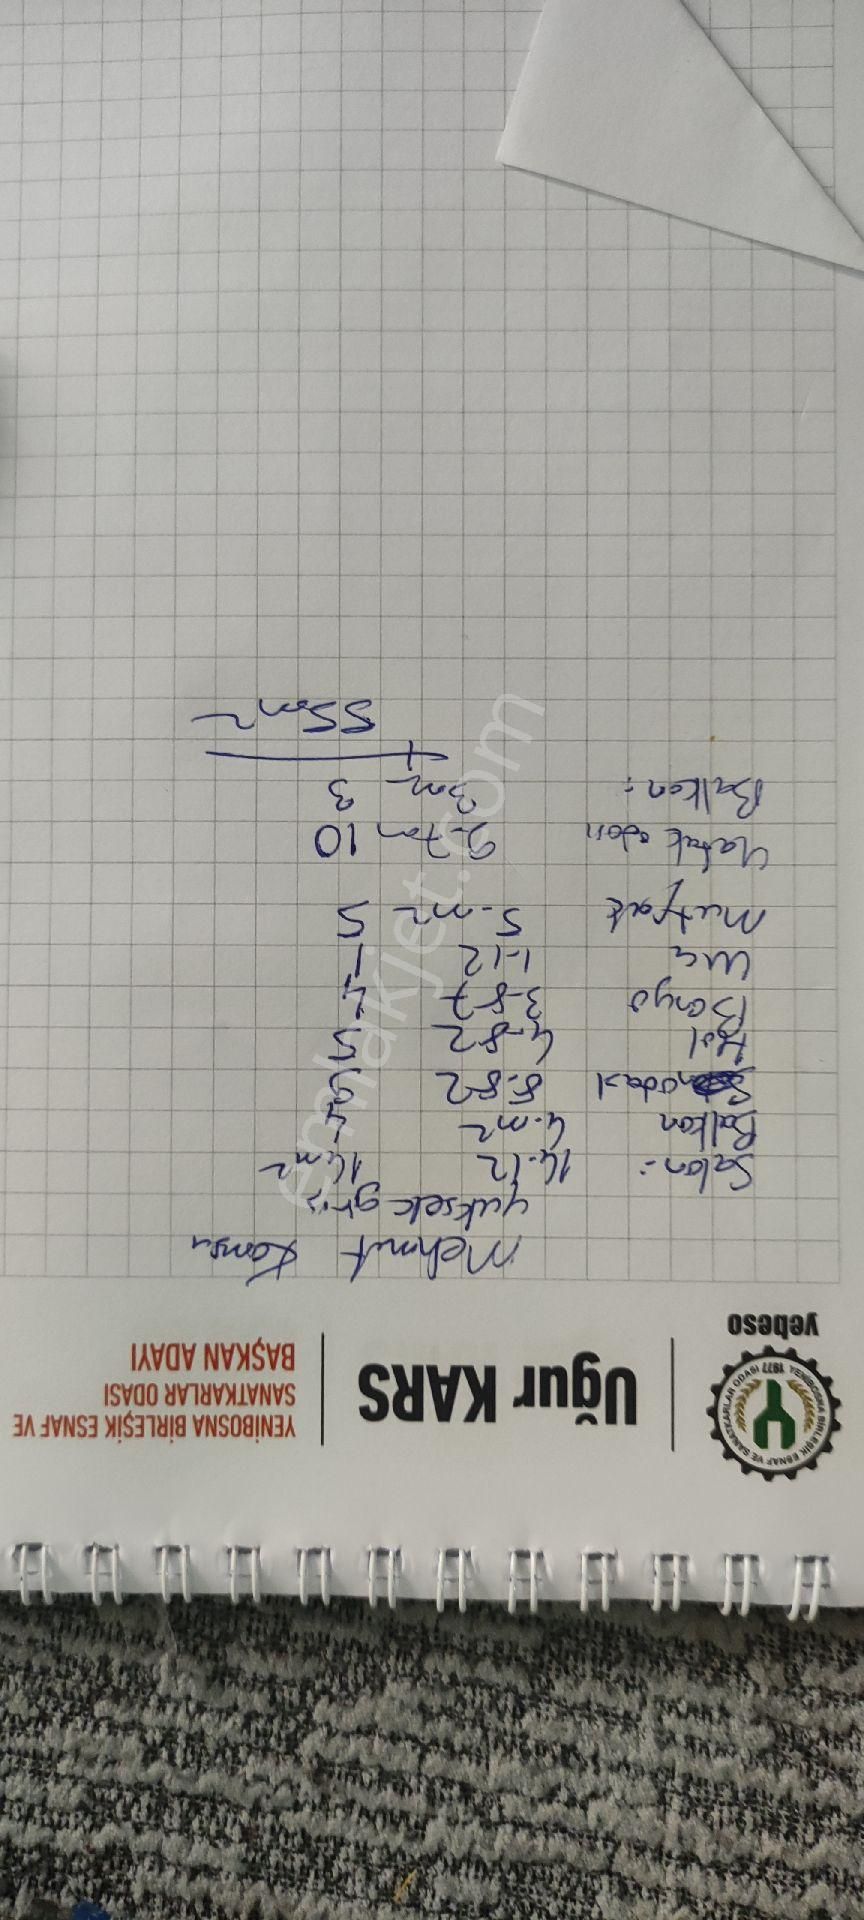 yebeso
YENİBOSNA BİRLEŞİK ESNAF VE SANATKARLAR ODASI 1977
Uğur KARS
YENİBOSNA BİRLEŞİK ESNAF VE
SANATKARLAR ODASI
BAŞKAN ADAYI
Mehmet
yüksek griş
Salon: 14-12 14m2
Balkon 4-m2 4
odası 8-82 9
Hol 4-82 5
Banyo 3-87 4
1-12 1
Mutfak 5-m2 5
Yatak odası 9-70m 10
Balkon: 3m 3
+
55m2
emlakjet.com